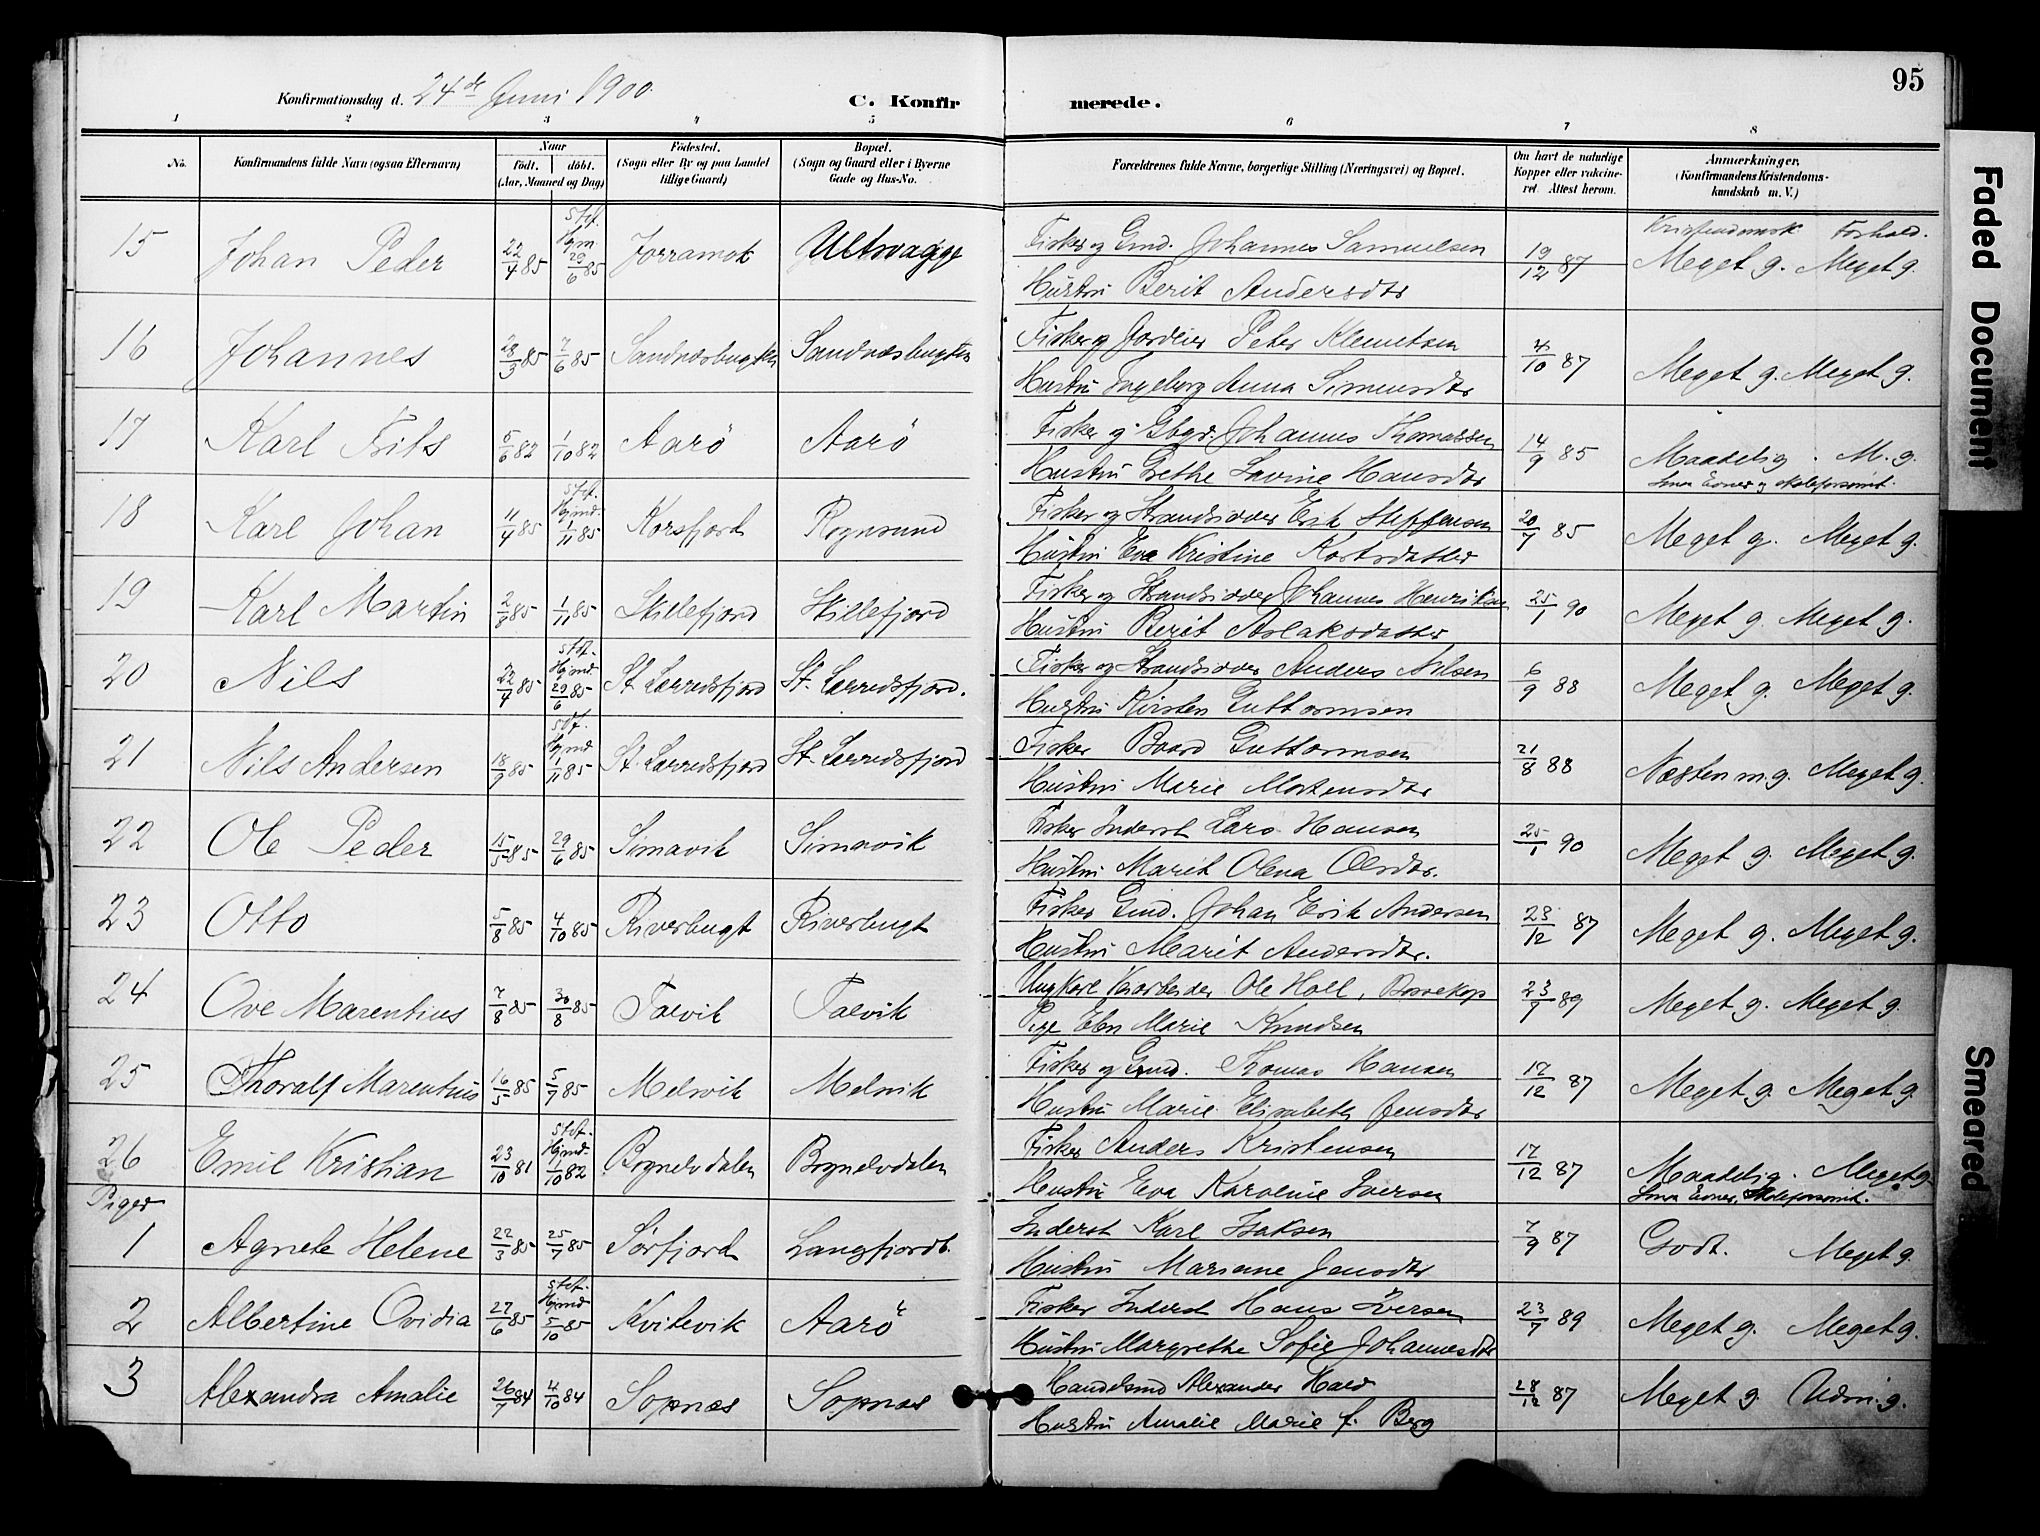 Konfirmationsdag d. 24de Juni 1900.
C. Konfirmerede.
95
1 2 3 4 5 6 7 8
No. Konfirmandens fulde Navn (ogsaa Efternavn) Naar født. døbt. (Aar, Maaned og Dag) Fødested. (Sogn eller By og paa Landet tillige Gaard) Bopæl. (Sogn og Gaard eller i Byerne Gade og Hus-No. Forældrenes fulde Navne, borgerlige Stilling (Næringsvei) og Bopæl. Om havt de naturlige Kopper eller vakcineret. Attest herom. Anmærkninger. (Konfirmandens Kristendomskundskab m. V.)
Kristendomsk Forhold.
15 Johan Peder 22/4 85 Stdf. Hjm 29/6 85 Jorramok Ultsvagge Fisker og Gmd. Johannes Samuelsen 19/12 87 Meget g. Meget g.
Hustru Berit Andersdtr
16 Johannes 28/3 85 7/6 85 Sandnæsbugten Sandnæsbugten Fisker og Gardeier Peter Klemetsen 4/10 87 Meget g. Meget g.
Hustru Ingeborg Anna Simensdtr
17 Karl Frits 5/6 82 1/10 82 Aarö Aarö Fisker og Gbgr. Johannes Thomassen 14/9 85 Maadelig. M. g.
Hustru Grethe Lavine Hansdtr Smaa Evner og skoleforsømt.
18 Karl Johan 11/4 85 Stdf. Hjmd. 1/11 85 Korsfjord Rognsund Fisker og Strandsidder Erik Steffensen 20/7 85 Meget g. Meget g.
Hustru Eva Kristine
19 Karl Martin 2/8 85 1/11 85 Skillefjord Skillefjord Fisker og Strandsidder Johannes Henriksen 25/1 90 Meget g. Meget g.
Hustru Berit Aslaksdatter
20 Nils 22/4 85 Stdf. Hjmd 29/6 85 St. Lerredsfjord St. Lerredsfjord. Fisker og Strandsidder Anders Nilsen 6/9 88 Meget g. Meget g.
Hustru Kirsten Guttormsen
21 Nils Andersen 18/9 85 Stdf. Hjmd 1/11 85 St. Lerredsfjord St. Lerredsfjord Fisker Baard Guttormsen 21/8 88 Næsten m. g. Meget g.
Hustru Marie Mortensdtr
22 Ole Peder 15/5 85 29/6 85 Simavik Simavik Fisker Inderst Lars Hansen 25/1 90 Meget g. Meget g.
Hustru Marit Olena Olsdtr.
23 Otto 5/8 85 4/10 85 Riverbugt Riverbugt Fisker Gmd. Johan Erik Andersen 23/12 87 Meget g. Meget g.
Hustru Marit Andersdtr.
24 Ove Marentius 7/8 85 30/8 85 Talvik Talvik Ungkarl Ole Holl, Bossekop 23/7 89 Meget g. Meget g.
Pige Marie Knudsen
25 Thoralf Marentius 16/5 85 5/7 85 Melsvik Melsvik Fisker og Gmd. Thomas Hansen 17/12 87 Meget g. Meget g.
Hustru Marie Elisabeth Jensdtr
26 Emil Kristian 23/10 81 Stdf. Hjmd. 1/10 82 Bognelvdalen Bognelvdalen Fisker Anders Kristensen 17/12 87 Maadelig. Meget g.
Hustru Eva Karoline Iversen Smaa Evner. Skoleforsømt.
Piger
1 Agnete Helene 22/3 85 25/7 85 Sørfjord Langfjordb. Inderst Karl Isaksen 7/9 87 Godt. Meget g.
Hustru Mariane Jensdtr
2 Albertine Ovidia 27/6 85 Stdf. Hjmd 5/10 85 Kvitevik Aarö Fisker Inderst Hans Iversen 23/7 89 Meget g. Meget g.
Hustru Margrethe Sofie Johannesdtr
3 Alexandra Amalie 26/7 84 4/10 84 Sopnæs Sopnæs Handelsmd Alexander Hald 28/12 87 Meget g. Udm. g.
Hustru Amalie Marie f. Berg
Faded Document
Smeared